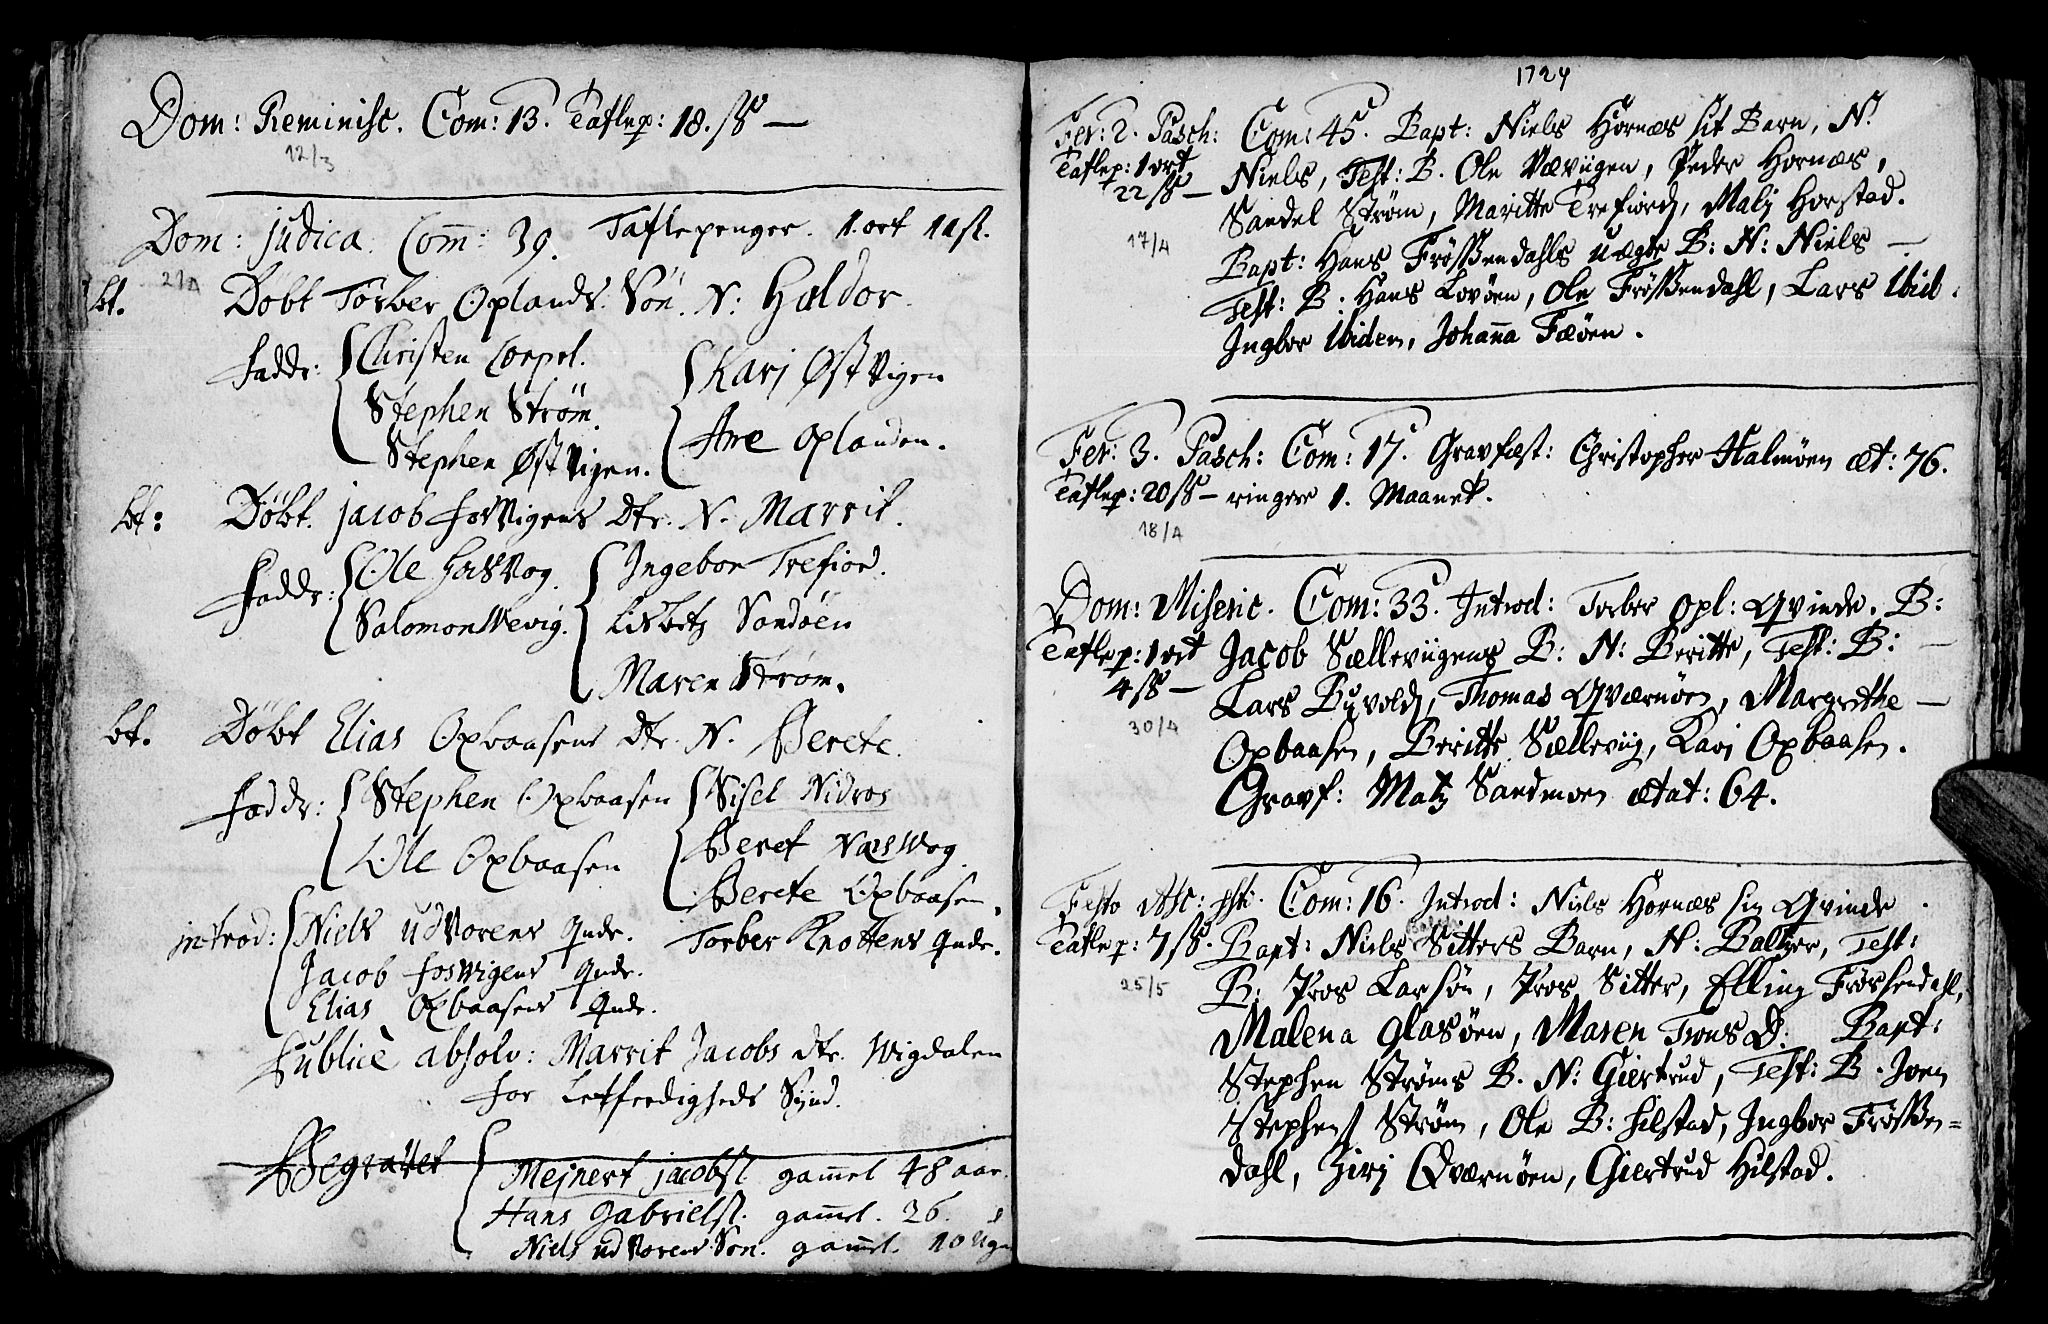 Dom: Reminisc. Com: 13. Taflep: 18. ß —
12/3
Dom: judica. Com̄: 39. Taflepenger. 1. ort 11 ß.
2/4
bt. Döbt Torber Oplands. Sön. N: Haldor.
Fadd: Christen Corpol. Karj Østvigen
Stephen Ström. Ane Oplanden.
Stephen Østvigen.
bt: Döbt. jacob forvigens dtr. N. Marrit.
Fadd: Ole Horsvog. Ingebor Trefior.
Salomon Wevig. Lisbetz Sandöen
Maren Ström.
bt. Döbt Elias Oxbaasens dtr. N. Berete.
Fadd: Stephen Oxbaasen Sisel Nidros
Ole Oxbaasen Beret Narswog
Berete Oxbaasen.
introd: Niels udvorens qnde. Torber Knottens qnde.
Jacob forswigens qnde.
Elias Oxbaasens qnde.
Publicè absolv: Marrit Jacobs dtr. Wigdalen
for Letferdigheds Synd.
Begravet Mejnert jacobsl. gam̄el 48 aar.
Hans Gabrielsl. gam̄el. 26.
Niels udvorens Sön. gam̄el. 10 Ugr
1724
Fer: 2. Pasch: Com: 45. Bapt: Niels Hornæs sit Barn, N.
Taflep: 1 ort Niels, Test: B. Ole Vævigen, Peder Hornæs,
22 ß — Sandel Strøm, Maritte Trefiord, Malj Horstad.
17/4
Bapt: Hans Frøssendahls uægte B: N: Niels —
Test: B. Hans Lovöen, Ole Frøssendahl, Lars Ibid.
Ingbor Ibidem, Johan̄a Fæöen.
Fer: 3. Pasch: Com: 17. Gravfæst: Christopher Halmöen æt: 76.
Taflep: 20 ß — ringer 1. Maanet.
18/4
Dom: Miseric. Com: 33. Introd: Torber Opl: Qvinde. B:
Taflep: 1 ort Jacob Sællevigens B: N: Beritte, Test: B: —
4 ß — Lars Byvold, Thomas Qværnöen, Margrethe —
30/4
Oxbaasen, Beritte Sællevig, Kari Oxbaasen.
Gravf: Matz Sandmoen ætat: 64.
Festo Asc: Com: 16. Introd: Niels Hornæs sin Qvinde.
Taflep: 7 ß. Bapt: Niels Sitters Barn, N: Baltzer, Test:
25/5
B: Pros Larsön, Pros Sitter, Elling Frøssendahl,
Malena Glasöen, Maren Trons D: Bapt:
Stephen Strøms B. N: Giertrud, Test: B. Joen
Stephens Strøm, Ole B: Hilstad, Ingbor Frøssen=
dahl, Zirj Qværnöen, Giertrud Hilstad.